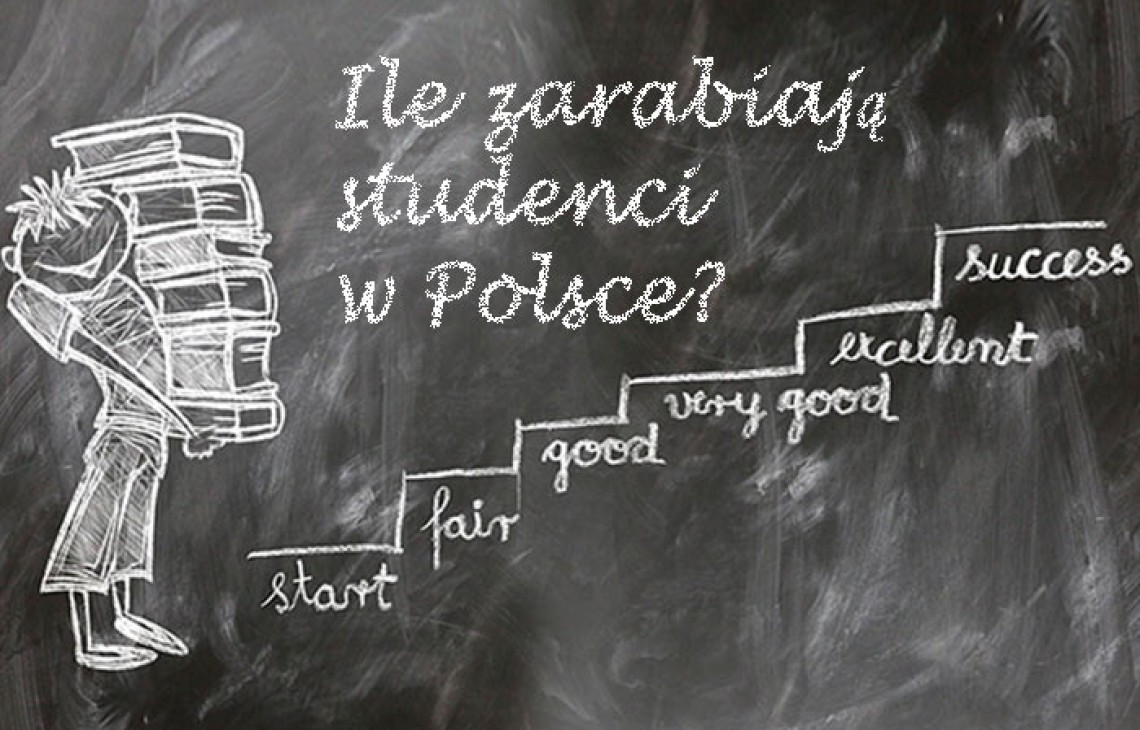 Ile zarabiają
studenci
w Polsce?
success
excellent
very good
good
fair
start